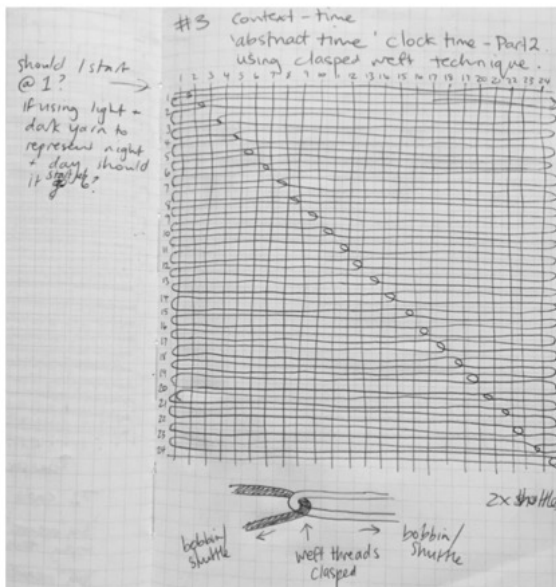 #3 context - time
'abstract time' clock time - Part 2
using clasped weft technique.
should I start
@ 1?
If using light +
dark yarn to
represent night
+ day should
it start @ 6?
1 2 3 4 5 6 7 8 9 10 11 12 13 14 15 16 17 18 19 20 21 22 23 24
1
2
3
4
5
6
7
8
9
10
11
12
13
14
15
16
17
18
19
20
21
22
23
24
2x shuttle
bobbin/
shuttle
weft threads
clasped
bobbin/
shuttle